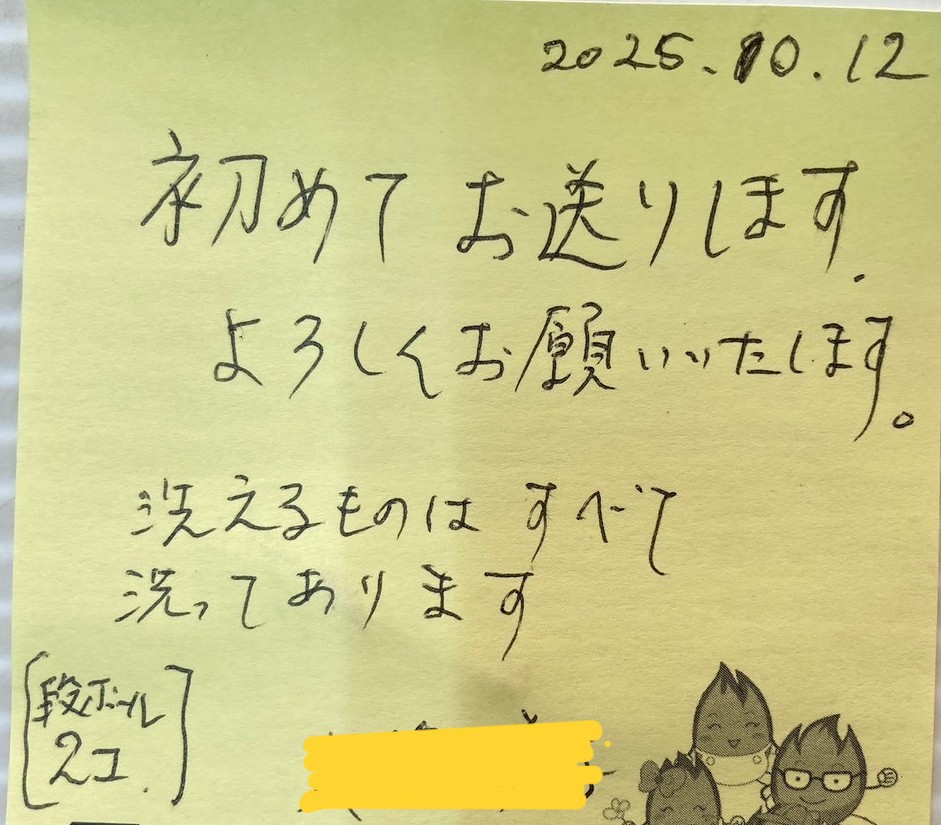 2025.10.12
初めて お送りします.
よろしくお願いいたします。
洗えるものは すべて
洗ってあります
[段ボール
2コ.]